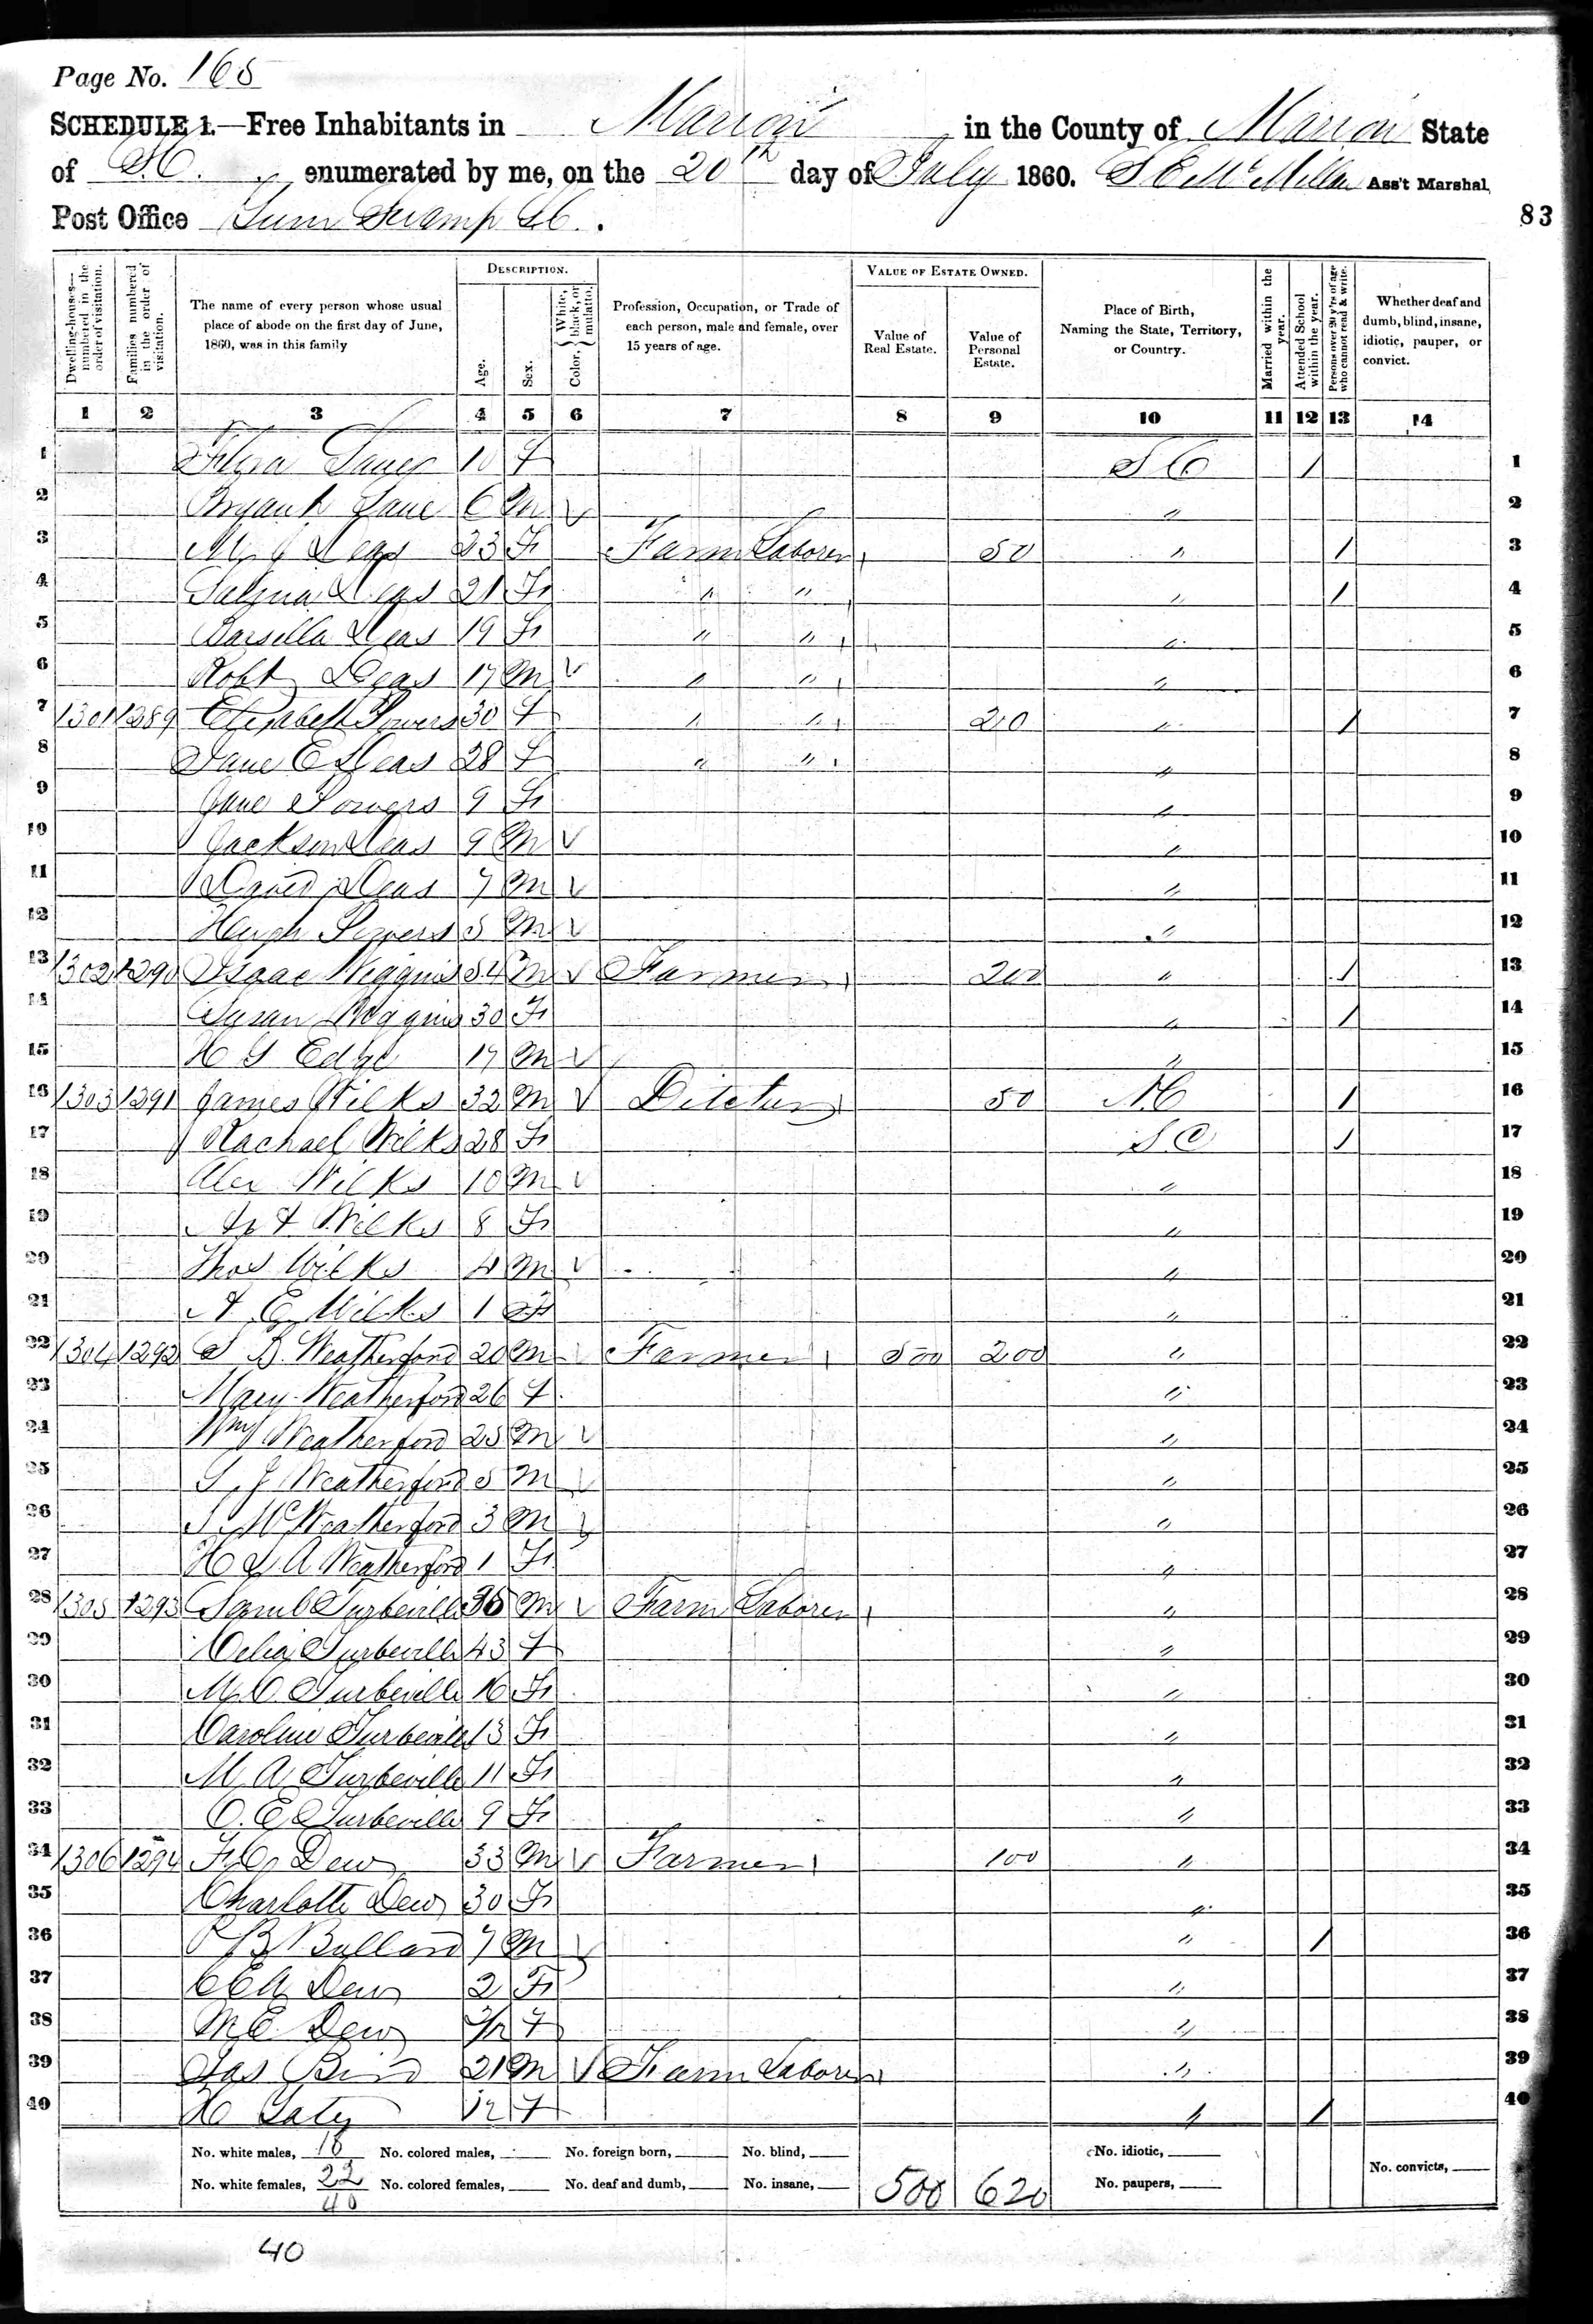 Page No. 165
SCHEDULE 1.—Free Inhabitants in Marion in the County of Marion State
of S.C. enumerated by me, on the 20th day of July 1860. S E McMillan Ass't Marshal
Post Office Gum Swamp S.C.
83
DESCRIPTION. VALUE OF ESTATE OWNED.
Dwelling-houses—numbered in the order of visitation. Families numbered in the order of visitation. The name of every person whose usual place of abode on the first day of June, 1860, was in this family Age. Sex. Color, {White, black, or mulatto. Profession, Occupation, or Trade of each person, male and female, over 15 years of age. Value of Real Estate. Value of Personal Estate. Place of Birth, Naming the State, Territory, or Country. Married within the year. Attended School within the year. Persons over 20 y'rs of age who cannot read & write. Whether deaf and dumb, blind, insane, idiotic, pauper, or convict.
1 2 3 4 5 6 7 8 9 10 11 12 13 14
1 10 F S C / 1
2 Bryant Lane 6 M √ " 2
3 M J Deas 23 F Farm Laborer 50 " / 3
4 Deas 21 F " " " / 4
5 Barsilla Deas 19 F " " " 5
6 Robt Deas 17 M √ " " " 6
7 1301 1289 Elizabeth Powers 30 F " " 20 " / 7
8 Jane E Deas 28 F " " " 8
9 Jane Powers 9 F " 9
10 Jackson Deas 9 M √ " 10
11 David Deas 7 M √ " 11
12 Hugh Powers 5 M √ " 12
13 1302 1290 Isaac Wiggins 54 M √ Farmer 200 " / 13
14 Susan Wiggins 30 F " / 14
15 H S Edge 17 M √ " 15
16 1303 1291 James Wilks 32 M √ Ditcher 50 N.C / 16
17 Rachael Wilks 28 F S.C / 17
18 Alex Wilks 10 M √ " 18
19 Wilks 8 F " 19
20 Thos Wilks 4 M √ " 20
21 A E Wilks 1 F " 21
22 1304 1292 S B. Weatherford 20 M √ Farmer 500 200 " 22
23 Mary Weatherford 26 F " 23
24 Wm Weatherford 25 M √ " 24
25 S J Weatherford 5 M √ " 25
26 S Mc Weatherford 3 M √ " 26
27 H L A Weatherford 1 F " 27
28 1305 1293 Saml Turbeville M √ Farm Laborer " 28
29 Celia Turbeville 43 F " 29
30 M C Turbeville 16 F " 30
31 Caroline Turbeville 13 F " 31
32 M A Turbeville 11 F " 32
33 C. E Turbeville 9 F " 33
34 1306 1294 F C Dew 33 M √ Farmer 100 " 34
35 Charlotte Dew 30 F " 35
36 P B Bullard 7 M √ " / 36
37 C E A Dew 2 F " 37
38 M E Dew F " 38
39 Jas Bird 21 M √ Farm Laborer " 39
40 H 12 F " / 40
No. white males, 18 No. colored males, No. foreign born, No. blind, No. idiotic,
No. white females, 22 No. colored females, No. deaf and dumb, No. insane, 500 620 No. paupers, No. convicts,
40
40